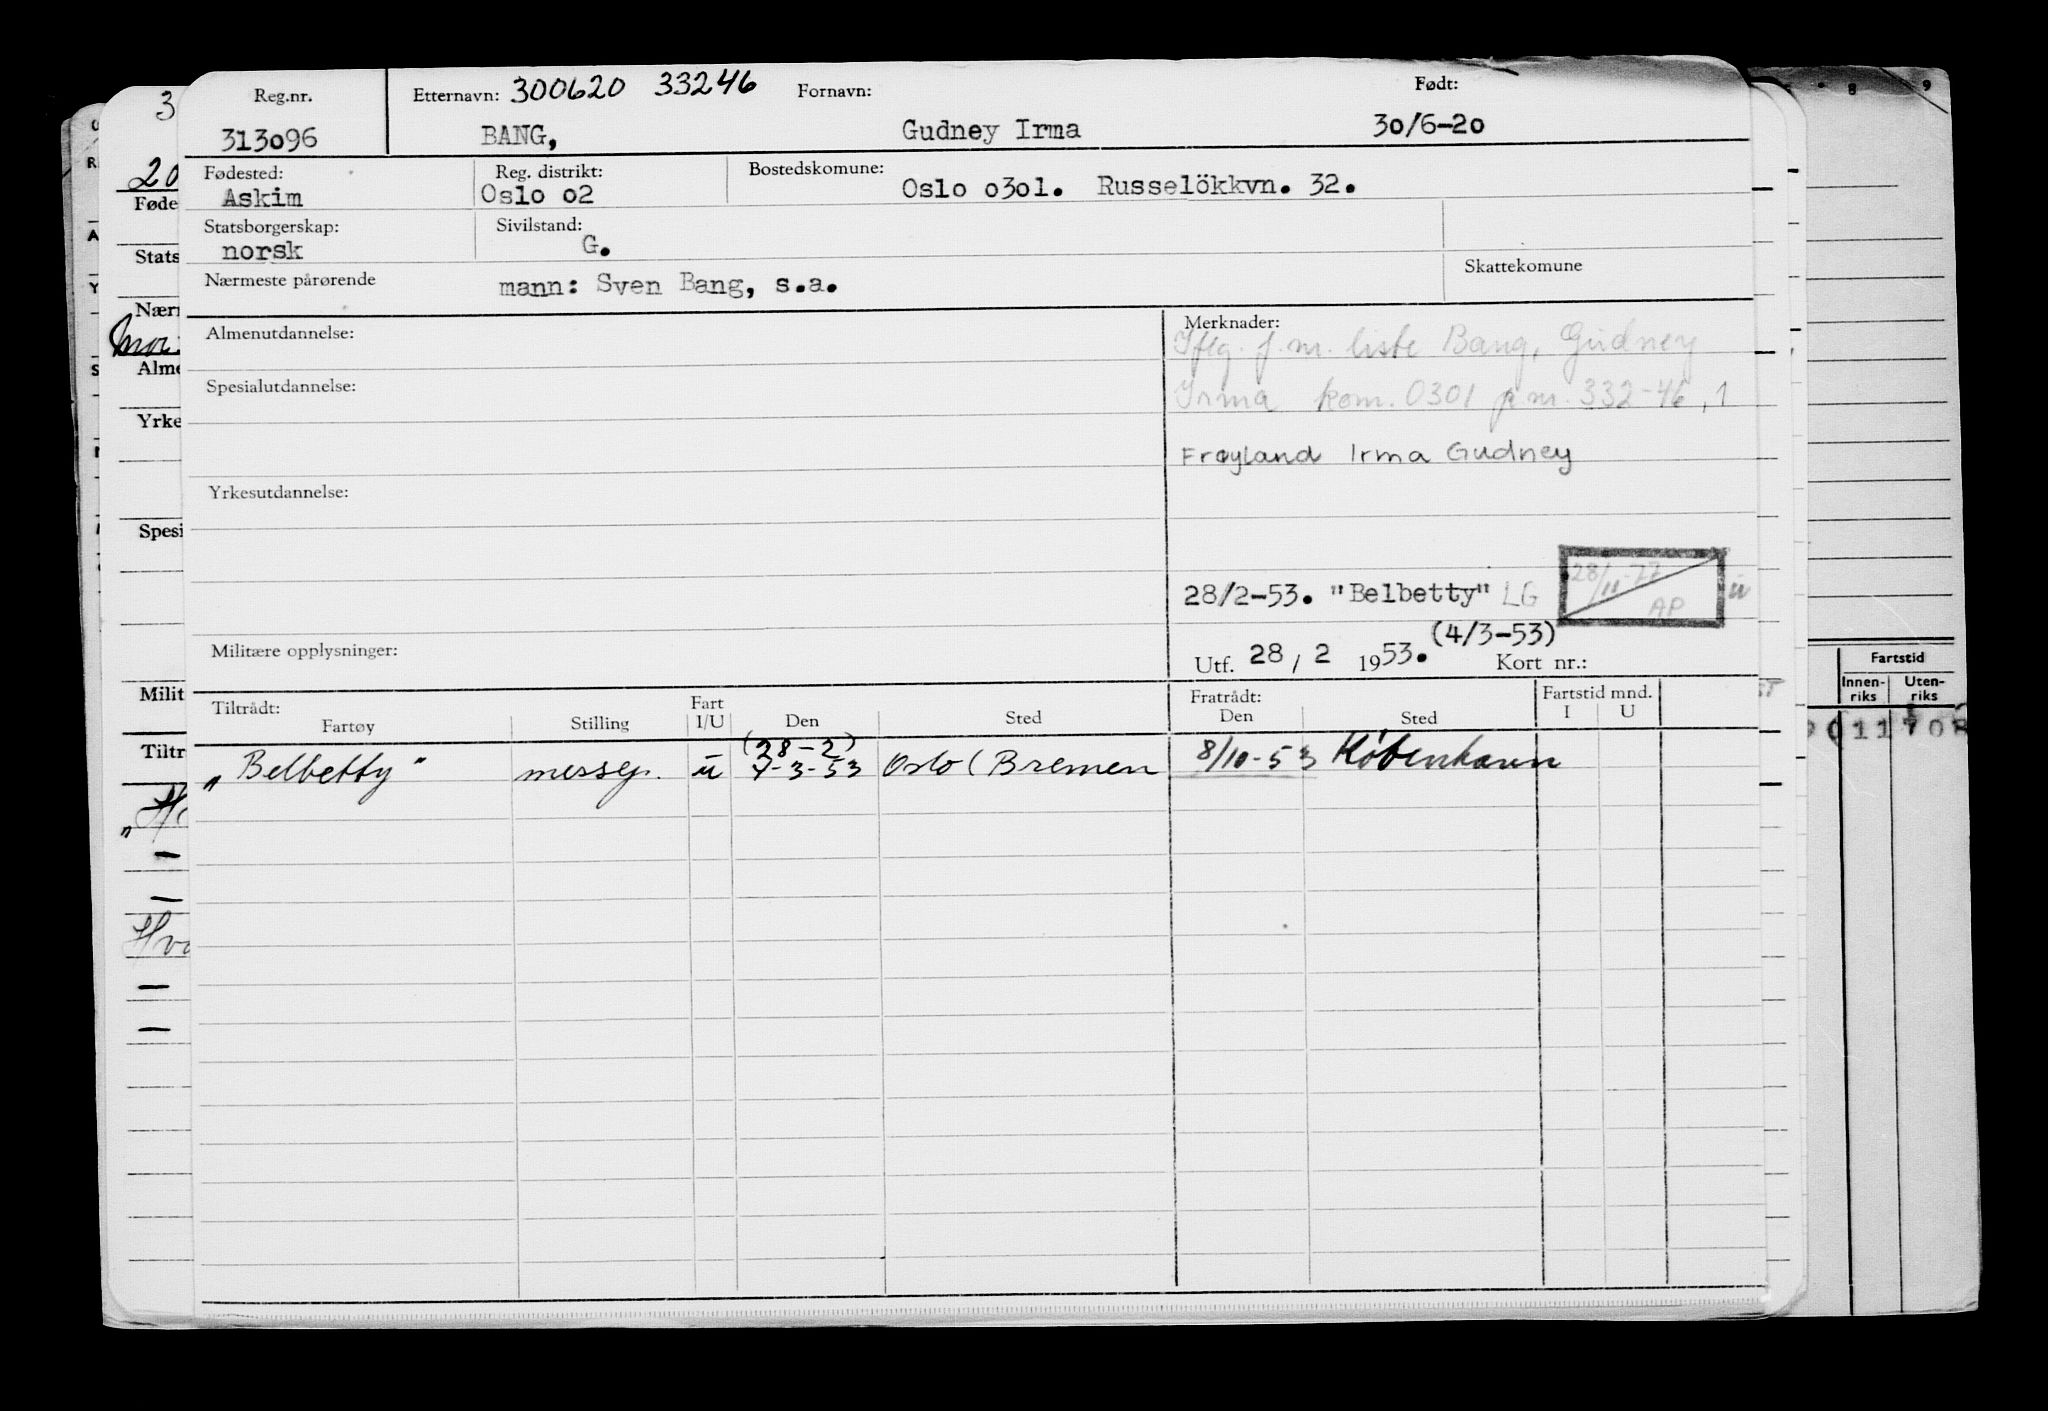 Reg.nr. Etternavn: 300620 33246 Fornavn: Født:
313096 BANG, Gudney Irma 30/6-20
Fødested: Reg. distrikt: Bostedskomune:
Askim Oslo 02 Oslo 0301. Russelökkvn. 32.
Statsborgerskap: Sivilstand:
norsk G.
Nærmeste pårørende mann: Sven Bang, s.a. Skattekomune
Almenutdannelse: Merknader:
Iflg. f.nr. liste Bang, Gudney
Spesialutdannelse: Irma kom. 0301 p nr. 332-46, 1
Frøyland Irma Gudney
Yrkesutdannelse:
28/2-53. "Belbetty" LG 28/11-77 AP ü
(4/3-53)
Militære opplysninger: Utf. 28 / 2 1953. Kort nr.:
Tiltrådt: Fart Fratrådt: Fartstid mnd.
Fartøy Stilling I/U Den Sted Den Sted I U
(28-2)
„Belbetty" messep. ü 7-3-53 Oslo (Bremen 8/10-53 København
3
20
Føde
Stats
Nærr
Mor:
Alme
Yrke
Spesi
Milit
Tiltr
„H
—
—
Hva
—
—
8 9
Fartstid
Innen-riks Uten-riks
011708